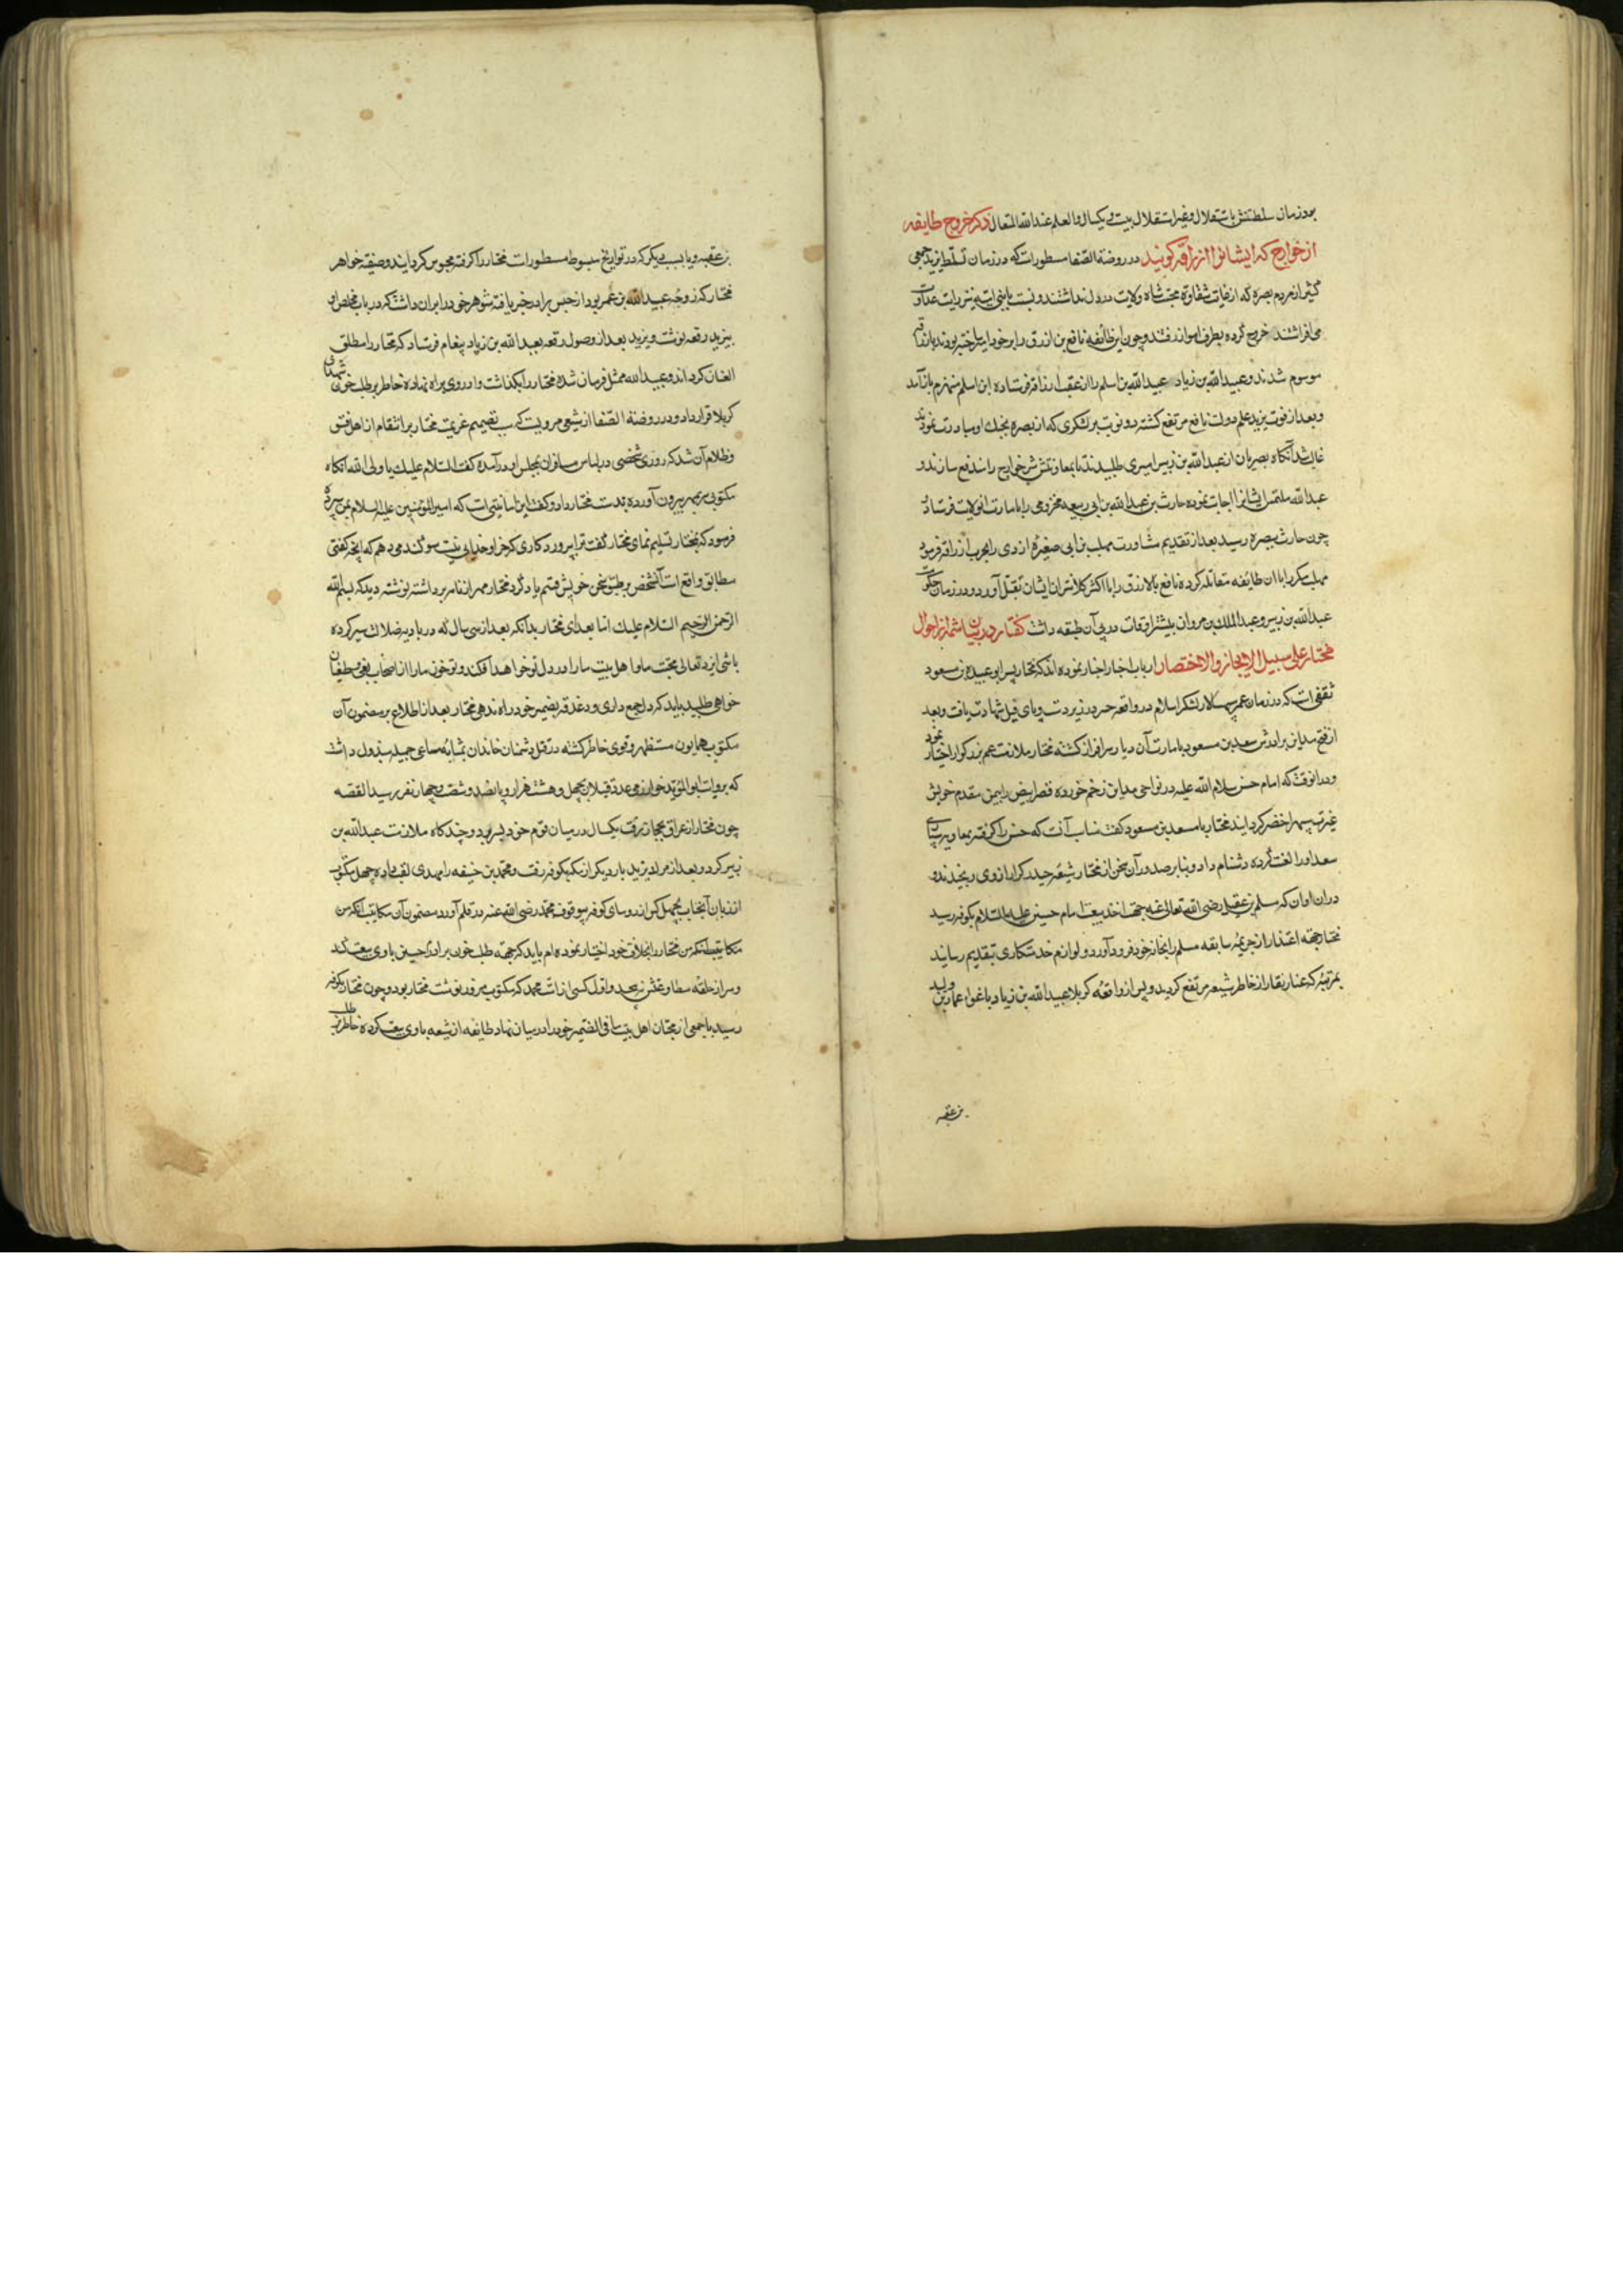 بود زمان سلطنتش باستقلال و غیر استقلال بیست و یکسال و العلم عند الله المتعال ذکر خروج طایفه
از خوارج که ایشانرا ازارقه کویند در روضة الصفا مسطورات که در زمان تسلط یزید جمعی
کثیر از مردم بصره که از غایت شقاوة محبت شاه ولایت در دل نداشتند و نسبت بابنی امیه نیز رایت عداوت
می افراشتند خروج کرده بطرف اهواز رفتند و چون این طائفه نافع بن ازرق را بر خود امیر ساختند بودند بازارقه
موسوم شدند و عبید الله بن زیاد عبید الله بن اسلم را از عقب ازارقه فرستاده ابن اسلم منهزم باز آمد
و بعد از فوت یزید علم دولت نافع مرتفع کشته دو نوبت بر لشکری که از بصره بجنک او مبادرت نمودند
غالب شد آنکاه بصریان از عبد الله بن زبیر امیری طلبیدند تا بمعاونتش شر خوارج را مندفع سازند و
عبد الله ملتمس ایشانرا اجابت نموده حارث بن عبد الله بن ابی ربیعه مخزومی را بامارت آنولایت فرستاد و
چون حارث ببصره رسید بعد از تقدیم مشاورت مهلب بن ابی صفره ازدی را بحرب ازارقه فرمود
مهلب مکررا با آن طایفه مقاتله کرده نافع بن الازرق را با اکثر کلانتران ایشان بقتل آورد و در زمان حکومت
عبد الله بن زبیر و عبد الملک بن مروان بیشتر اوقات در پی آن طبقه داشت کفتار در بیان شمه از احوال
مختار علی سبیل الایجاز و الاختصار ارباب اخبار اخبار نموده اند که مختار پسر ابو عبیده بن مسعود
ثقفی است که در زمان عمر سپهسالار لشکر اسلام در واقعه جسر در زیر دست و پای فیل شهادت یافت و بعد
از فتح مداین برادرش سعد بن مسعود بامارت آن دیار سرافراز کشته مختار ملازمت عم بزرکوار اختیار نمود
و در انوقت که امام حسن سلام الله علیه در نواحی مداین زخم خورده قصر ابیض را بیمن مقدم خویش
غیرت سپهر اخضر کردانید مختار با سعد بن مسعود کفت مناسب آنست که حسن را کرفته بمعاویه سپاری
سعد او را لعنت کرده دشنام داد و بنا بر صدور آن سخن از مختار شیعه حیدر کرار از وی رنجیدند و
دران اوان که مسلم بن عقیل رضی الله تعالی عنه جهة اخذ بیعت امام حسین علیه السلام بکوفه رسید
مختار جهة اعتذار از جریمه سابقه مسلم را بخانه خود فرود آورد و لوازم خدمتکاری بتقدیم رسانید
بمرتبه که غبار نقار از خاطر شیعه مرتفع کردید و پس از واقعه کربلا عبید الله بن زیاد باغواء عمارة بن ولید
بن عقبه
بن عقبه و یا بسبب دیکر که در تواریخ مبسوطه مسطورات مختار را کرفته محبوس کردانید و صفیه خواهر
مختار که زوجه عبد الله بن عمر بود از حبس برادر خبر یافته شوهر خود را بران داشت که در باب مخلص او
بیزید رقعه نوشت و یزید بعد از وصول رقعه بعبید الله بن زیاد پیغام فرستاد که مختار را مطلق
العنان کرداند و عبید الله ممثل فرمان شده مختار را بکذاشت و او روی براه نهاده خاطر بر طلب خون شهدای
کربلا قرار داد و در روضة الصفا از شعبی مرویست که سبب تصمیم عزیمت مختار بر انتقام از اهل فسق
و ظلام آن شد که روزی شخصی در لباس مسافران بمجلس او در آمده کفت السلام علیک یا ولی الله آنکاه
مکتوبی سر بمهر بیرون آورده بدست مختار داد و کفت این امانتیست که امیر المؤمنین علیه السلام بمن سپرده
فرمود که بمختار تسلیم نمای مختار کفت ترا بپروردکاری که جز او خدایی نیست سوکند میدهم که انچه کفتی
مطابق واقع است آنشخص بر طبق سخن خویش قسم یاد کرد مختار مهر از نامه برداشته نوشته دید که بسم الله
الرحمن الرحیم السلام علیک اما بعد ای مختار بدانکه بعد از سی سال که در بادیه ضلالت سیر کرده
باشی ایزد تعالی محبت ما و اهل بیت ما را در دل تو خواهد افکند و تو خون ما را از اصحاب بغی و طغیان
خواهی طلبید باید که دل جمع داری و دغدغه بضمیر خود راه ندهی مختار بعد از اطلاع بر مضمون آن
مکتوب همایون مستظهر و قوی خاطر کشته در قتل دشمنان خاندان بمثابه مساعی جمیله مبذول داشت
که بروایت ابو المؤید خوارزمی عدد قتیلان بچهل و هشت هزار و پانصد و شصت و چهار نفر رسید القصه
چون مختار از عراق بحجاز رفت یکسال در میان قوم خود بسر برد و چند کاه ملازمت عبد الله بن
زبیر کرد و بعد از مردن یزید بار دیکر از مکه بکوفه رفت و محمد بن حنیفه را مهدی لقب داده چهل مکتوب
از زبان آنجناب بچهل کس از رؤسای کوفه بی وقوف محمد رضی الله عنه در قلم آورد مضمون آن مکاتیب آنکه من
مکاتیب آنکه من مختار را بخلافت خود اختیار نموده ام باید که جهة طلب خون برادرم حسین با وی بیعت کنید
و سر از حلقه مطاوعتش نپیچید و اول کسی از امت محمد که مکتوب مزور نوشت مختار بود و چون مختار بکوفه
رسید با جمعی از محبان اهل بیت ما فی الضمیر خود را در میان نهاد طایفه از شیعه با وی بیعت کرده خاطر بر طلب